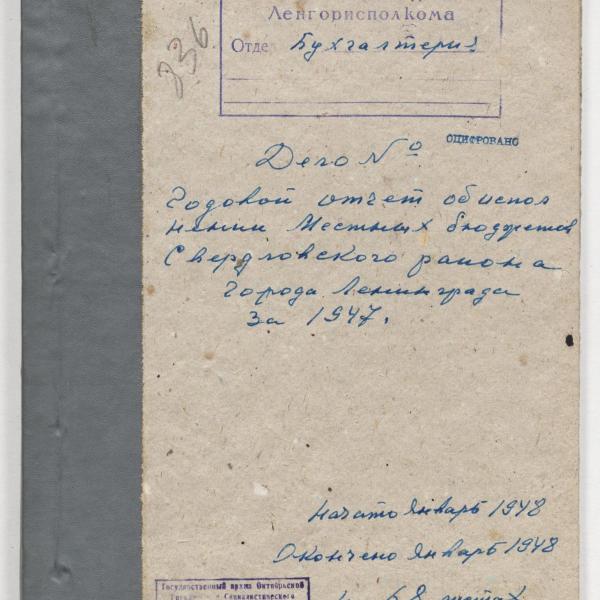 Ленгорисполкома
236
Отде Бухгалтерия
ОЦИФРОВАНО
Дело №
Годовой отчет об испол
нении Местных бюджетов
Свердловского района
Города Ленинграда
За 1947.
Начато Январь 1948
Окончено Январь 1948
68 листах
Государственный архив Октябрьской
Социалистического